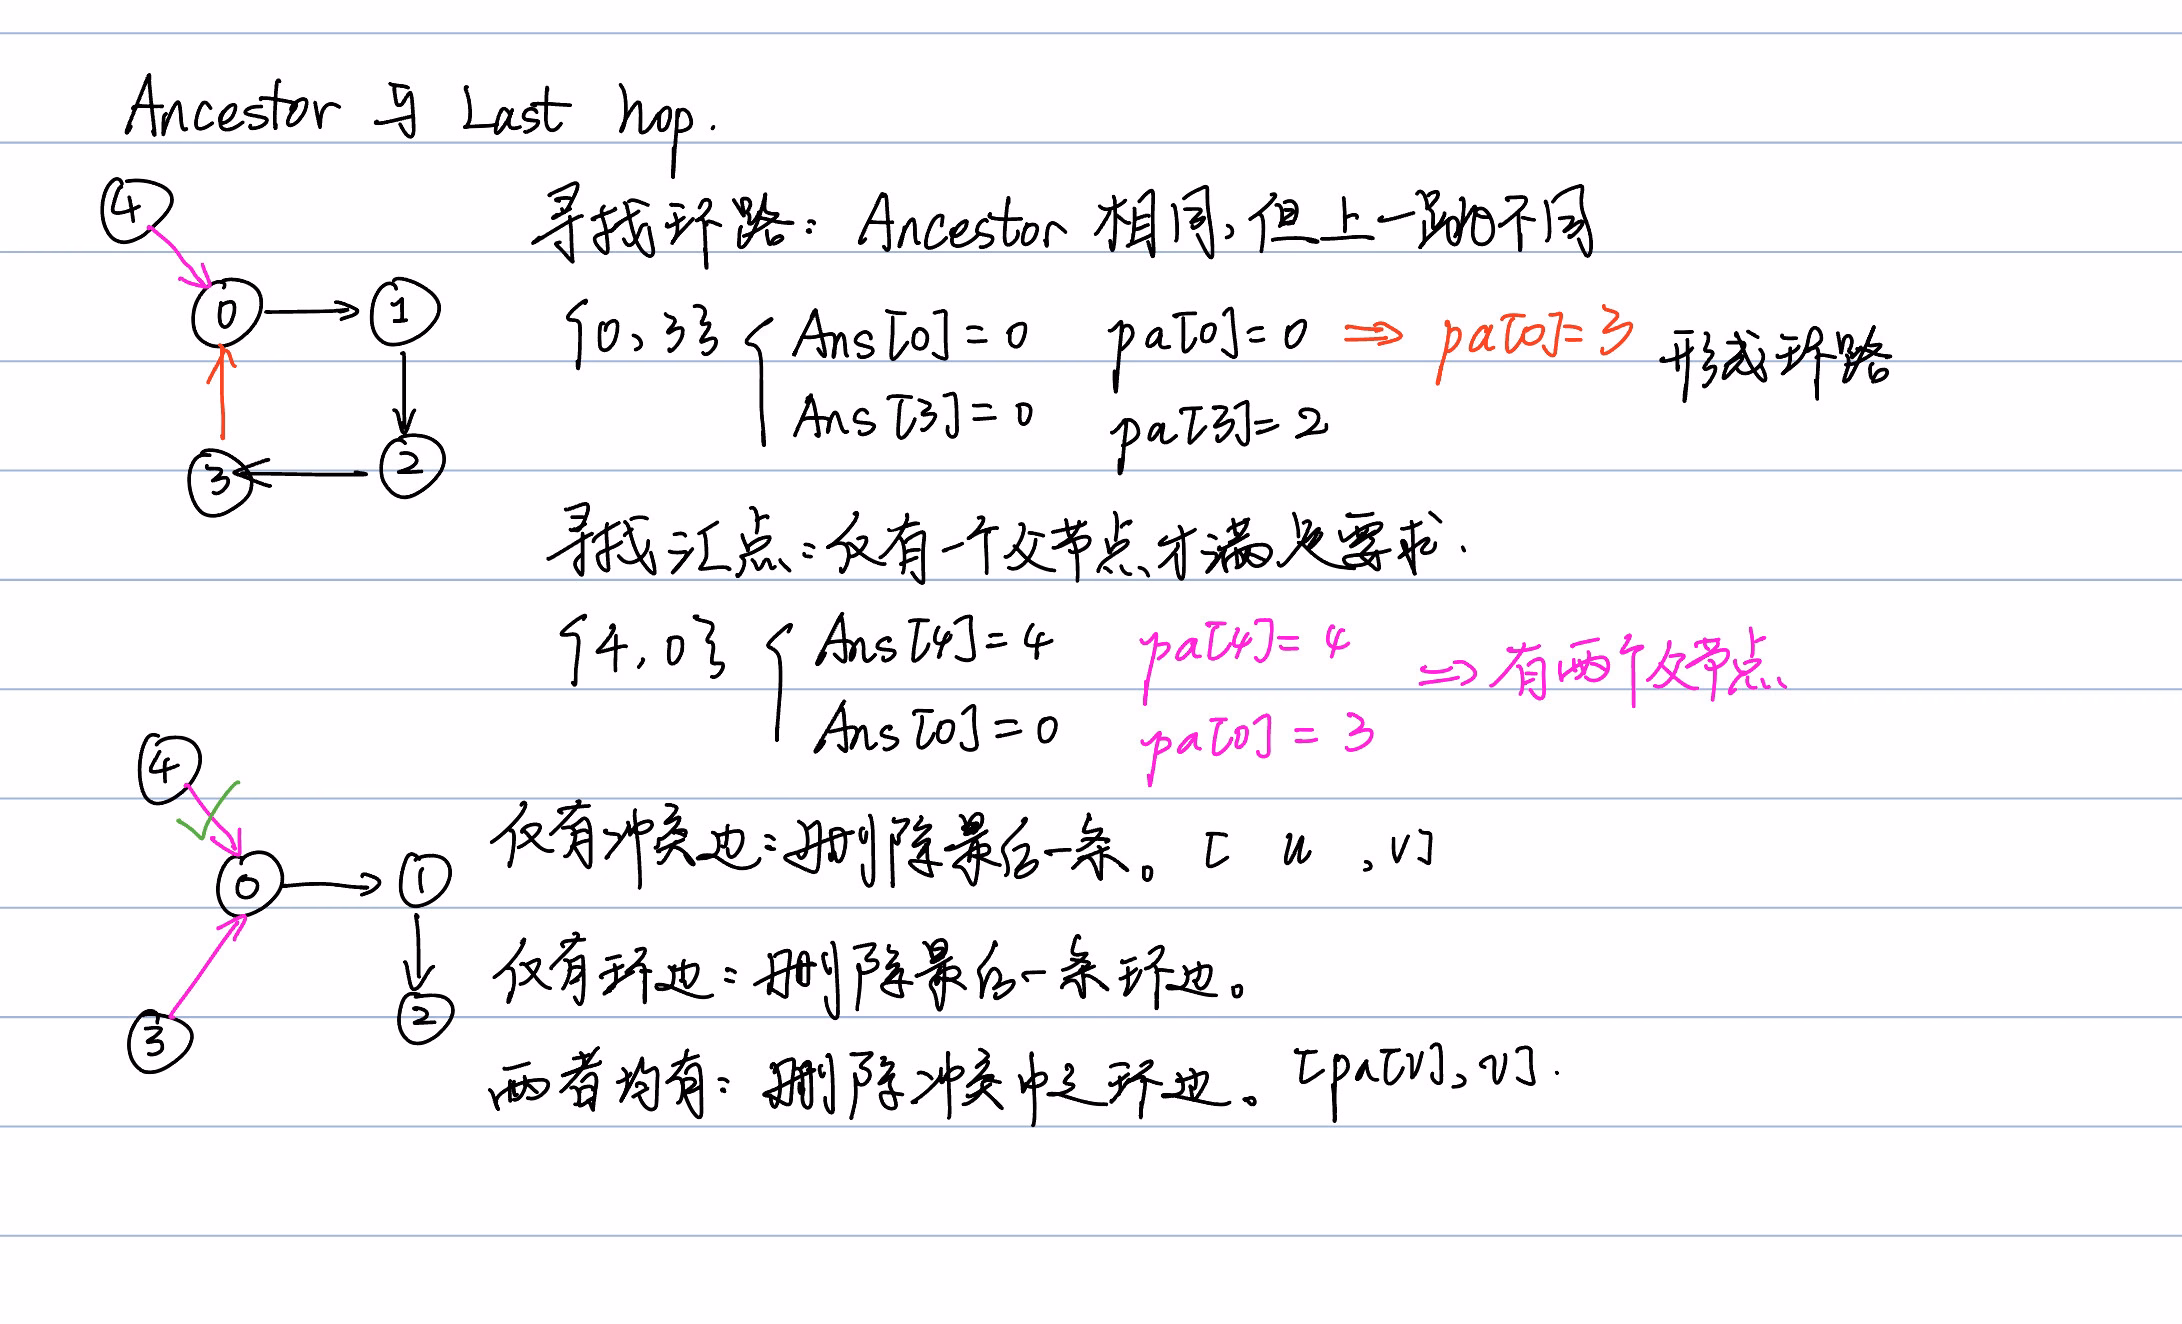 Ancestor 与 Last hop.
寻找环路: Ancestor 相同, 但上一跳不同
4
0
1
3
2
{0, 3} { Ans[0] = 0 pa[0] = 0 ⇒ pa[0] = 3 形成环路
Ans[3] = 0 pa[3] = 2
寻找汇点: 仅有一个父节点才满足要求.
{4, 0} { Ans[4] = 4 pa[4] = 4 ⇒ 有两个父节点
Ans[0] = 0 pa[0] = 3
4
0
1
2
3
仅有冲突边: 删除最后一条。 [ u , v]
仅有环边: 删除最后一条环边。
两者均有: 删除冲突中之环边。 [pa[v], v].